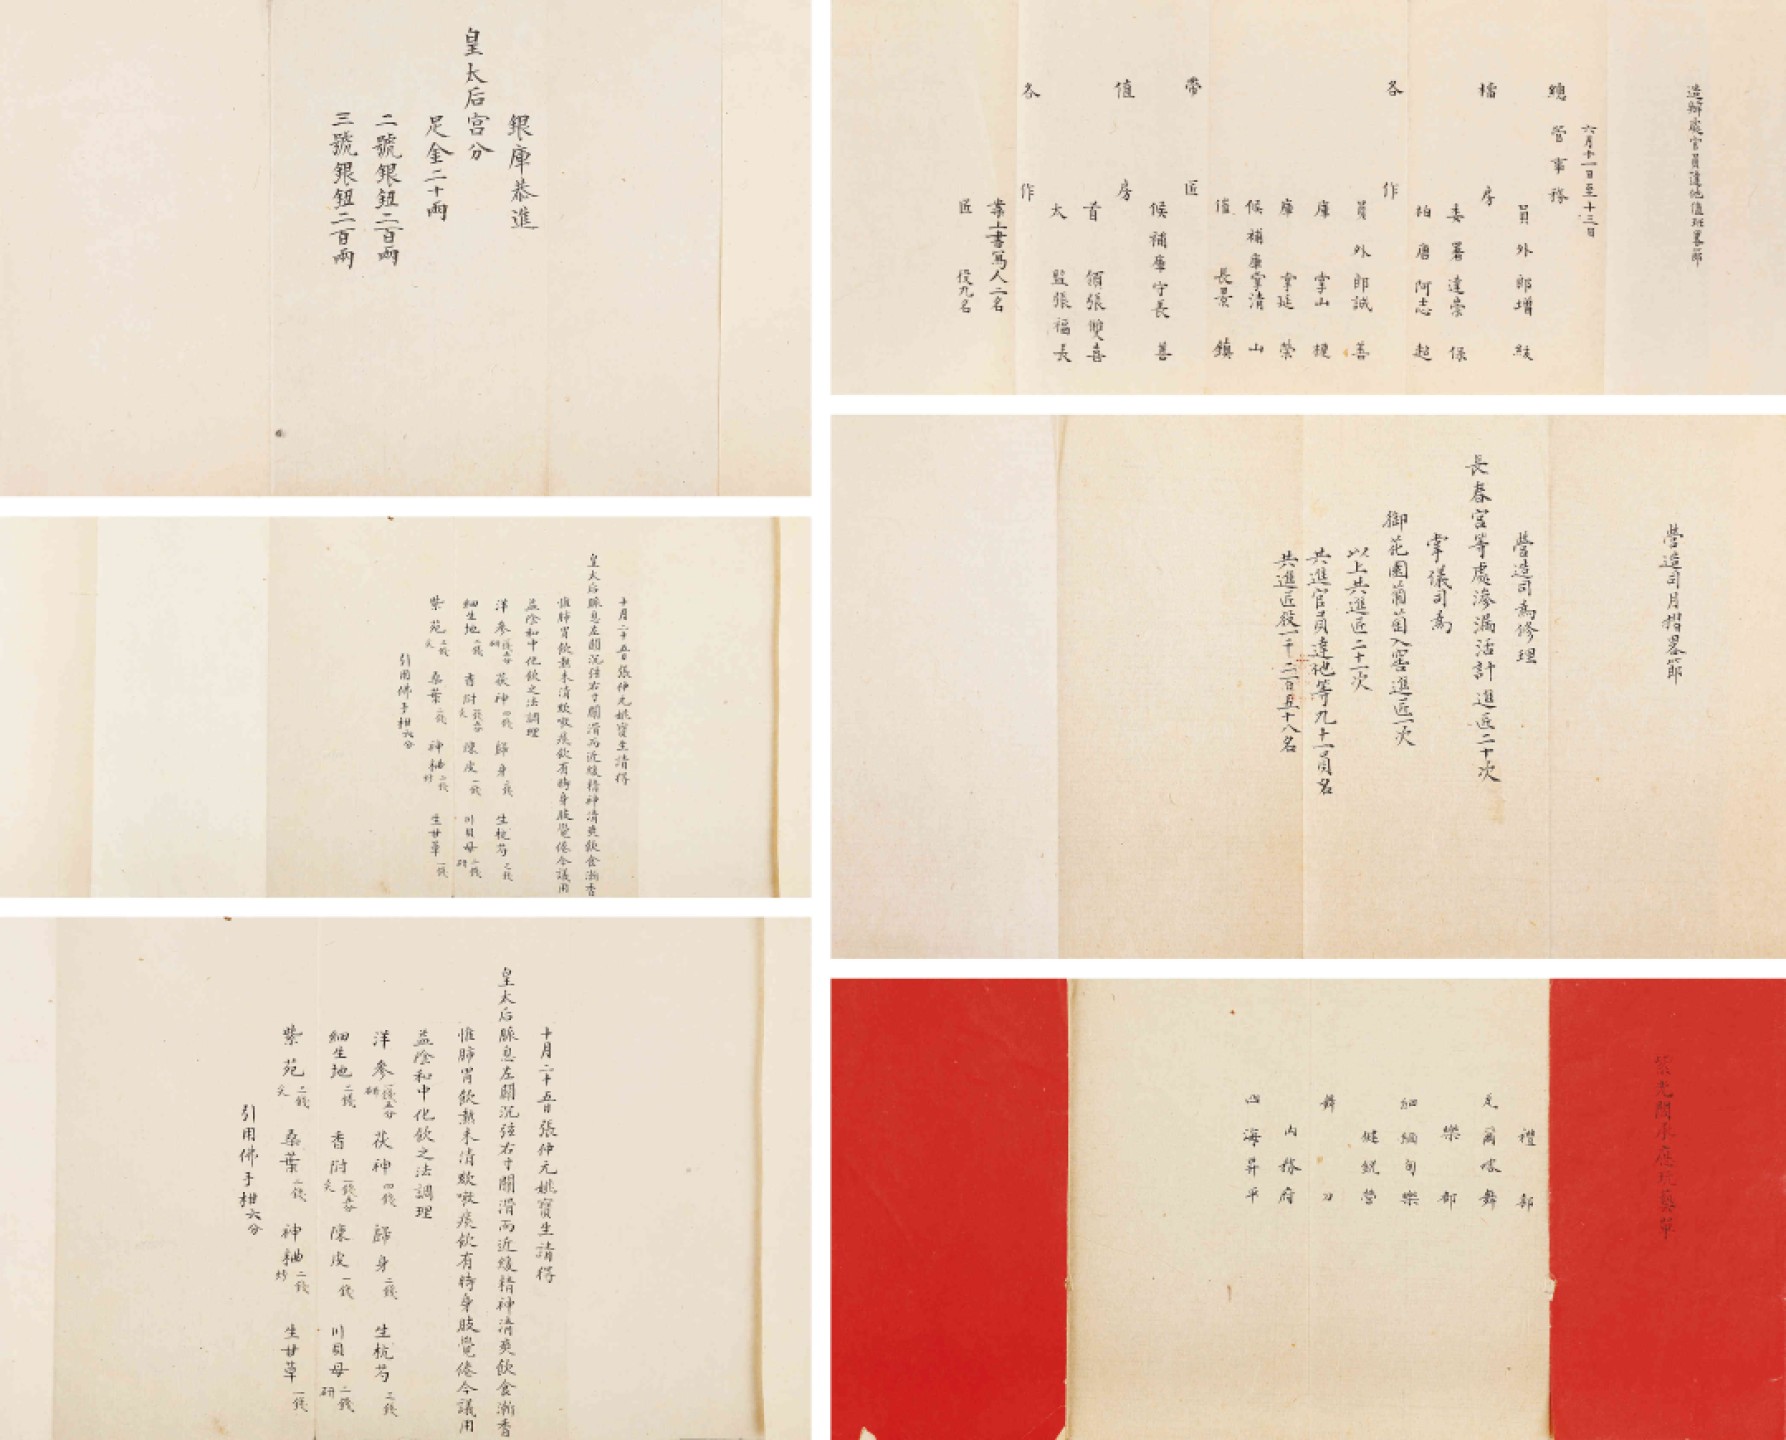 銀庫恭進
皇太后宮分
足金二十兩
二號銀鈕二百兩
三號銀鈕二百兩
十月二十五日張仲元姚寶生請得
皇太后脈息左關沉弦右寸關滑而近緩精神清爽飲食漸香
惟肺胃飲熱未清欬嗽痰飲有時身肢覺倦今議用
益陰和中化飲之法調理
洋參一錢五分研 茯神四錢 歸身二錢 生杭芍二錢
細生地二錢 香附一錢五分炙 陳皮一錢 川貝母二錢研
紫菀二錢炙 桑葉二錢 神麯二錢炒 生甘草一錢
引用佛手柑六分
十月二十五日張仲元姚寶生請得
皇太后脈息左關沉弦右寸關滑而近緩精神清爽飲食漸香
惟肺胃飲熱未清欬嗽痰飲有時身肢覺倦今議用
益陰和中化飲之法調理
洋參一錢五分研 茯神四錢 歸身二錢 生杭芍二錢
細生地二錢 香附一錢五分炙 陳皮一錢 川貝母二錢研
紫苑二錢炙 桑葉二錢 神麯二錢炒 生甘草一錢
引用佛手柑六分
造辦處官員達他值班畧節
六月十一日至十三日
總管事務
員外郎增紱
檔房
委署達崇保
柏唐阿志超
各作
員外郎誠善
庫掌山
庫掌延榮
候補庫掌清山
催長景鎮
帶匠
候補庫守長善
值房
首領張雙喜
太監張福長
各作
案上書寫人二名
匠役九名
營造司月摺畧節
營造司為修理
長春宮等處滲漏活計進匠二十次
掌儀司為
御花園葡萄入窖進匠一次
以上共進匠二十一次
共進官員達他等九十一員名
共進匠役一千二百五十八名
紫光閣承應玩藝單
禮部
慶爾喀舞
樂部
細緬甸樂
健銳營
舞刀
內務府
四海昇平